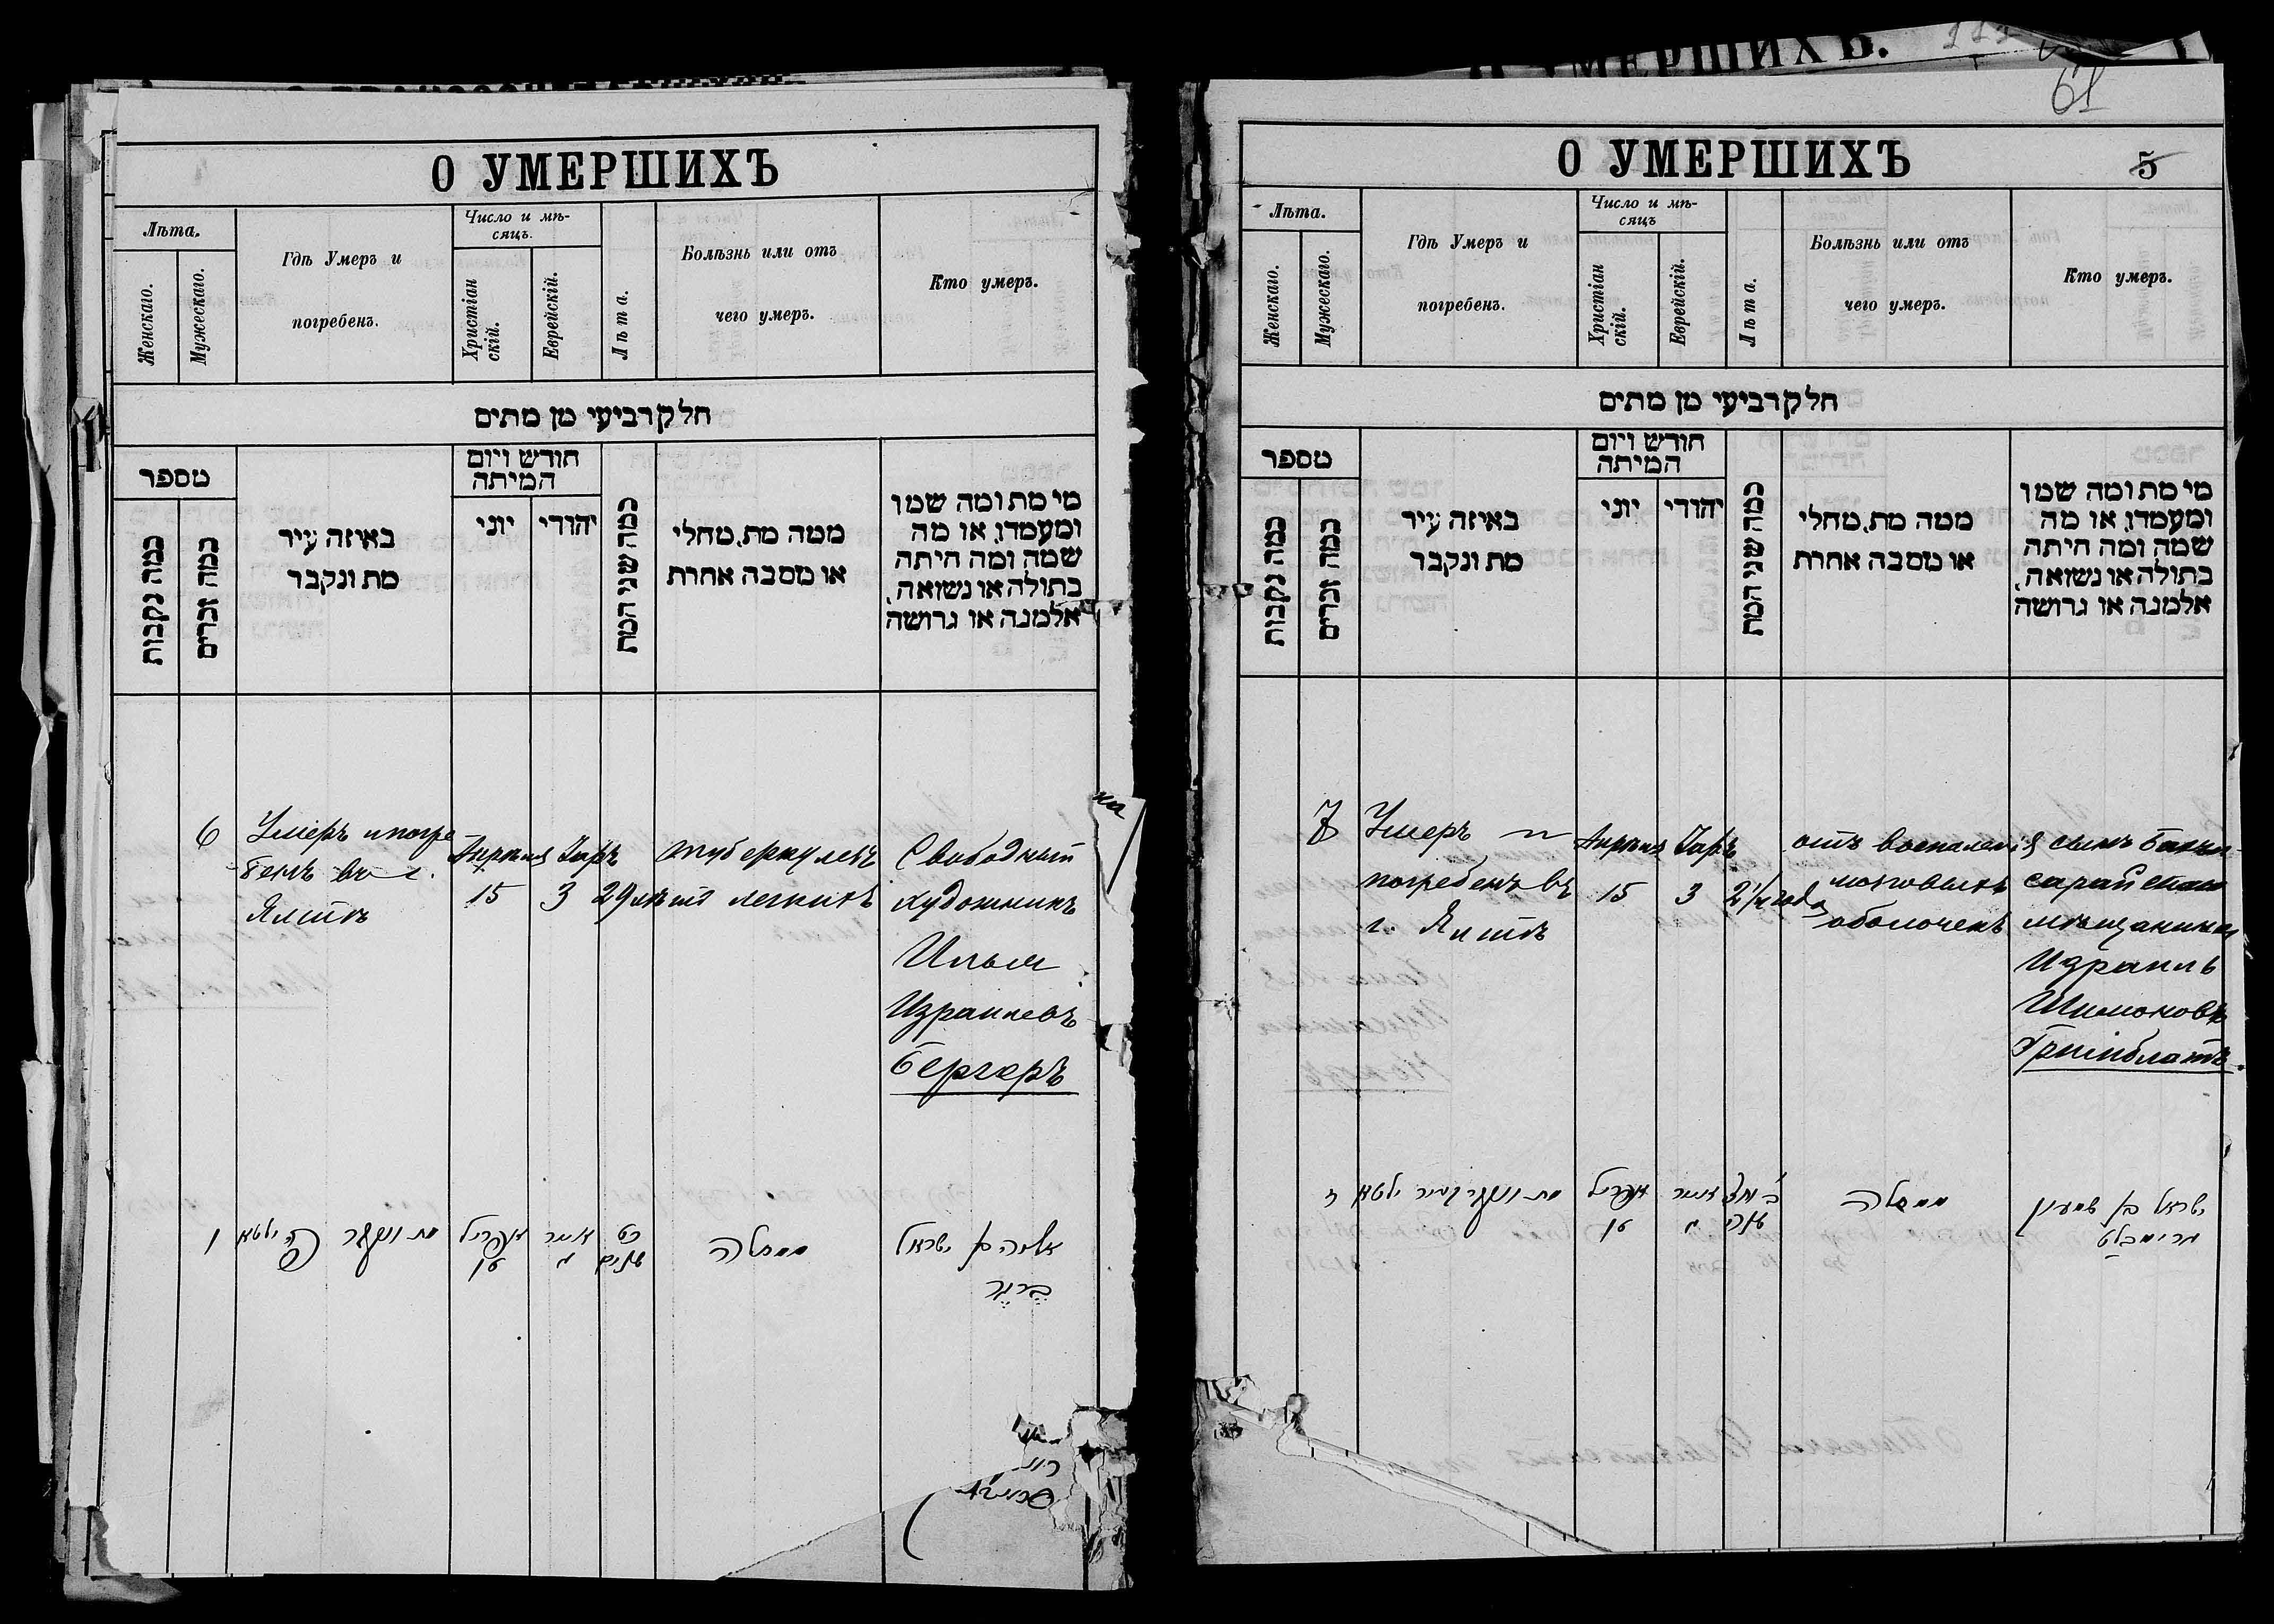 О УМЕРШИХЪ
Лѣта.
Женскаго.
Мужескаго.
Гдѣ Умеръ и
погребенъ.
Число и мѣ-
сяцъ.
Христіан
скій.
Еврейскій.
Лѣта.
Болѣзнь или отъ
чего умеръ.
Кто умеръ.
חלק רביעי מן מתים
מספר
כמה נקבות
כמה זכרים
באיזה עיר
מת ונקבר
חודש ויום
המיתה
יוני
יהודי
כמה שני המת
ממה מת, מחלי
או מסבה אחרת
מי מת ומה שמו
ומעמדו, או מה
שמה ומה היתה
בתולה או נשואה,
אלמנה או גרושה
6
Умеръ и погре
бенъ въ г.
Ялтѣ
Апрѣля
15
Іаръ
3
29 лѣтъ
туберкулезъ
легкихъ
Свободный
художникъ
Илья
Израилевъ
Бергеръ
ו
מת ונקבר פה יאלטא
אפריל
טו
אייר
כט
שנים
ממחלה
אליה בן ישראל
בערגער
О УМЕРШИХЪ.
61
О УМЕРШИХЪ
5
Лѣта.
Женскаго.
Мужескаго.
Гдѣ Умеръ и
погребенъ.
Число и мѣ-
сяцъ
Христіан
скій.
Еврейскій.
Лѣта.
Болѣзнь или отъ
чего умеръ.
Кто умеръ.
חלק רביעי מן מתים
מספר
כמה נקבות
כמה זכרים
באיזה עיר
מת ונקבר
חודש ויום
המיתה
יוני
יהודי
כמה שני המת
ממה מת, מחלי
או מסבה אחרת
מי מת ומה שמו
ומעמדו, או מה
שמה ומה היתה
בתולה או נשואה,
אלמנה או גרושה
7
Умеръ и
погребенъ въ
г. Ялтѣ
Апрѣля
15
Іаръ
3
2½ года
отъ воспаленія
мозговыхъ
оболочекъ
сынъ Бахчи-
сарайскаго
мѣщанина
Израиль
Шимоновъ
Гринблатъ.
ז
מת ונקבר בעיר יאלטא
אפריל
טו
אייר
ב' וחצי
שנה
ממחלה
ישראל בן שמעון
גרינבלט